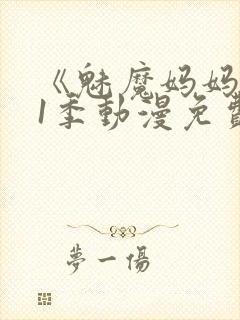 《魅魔妈妈
1季動漫免費
夢一傷